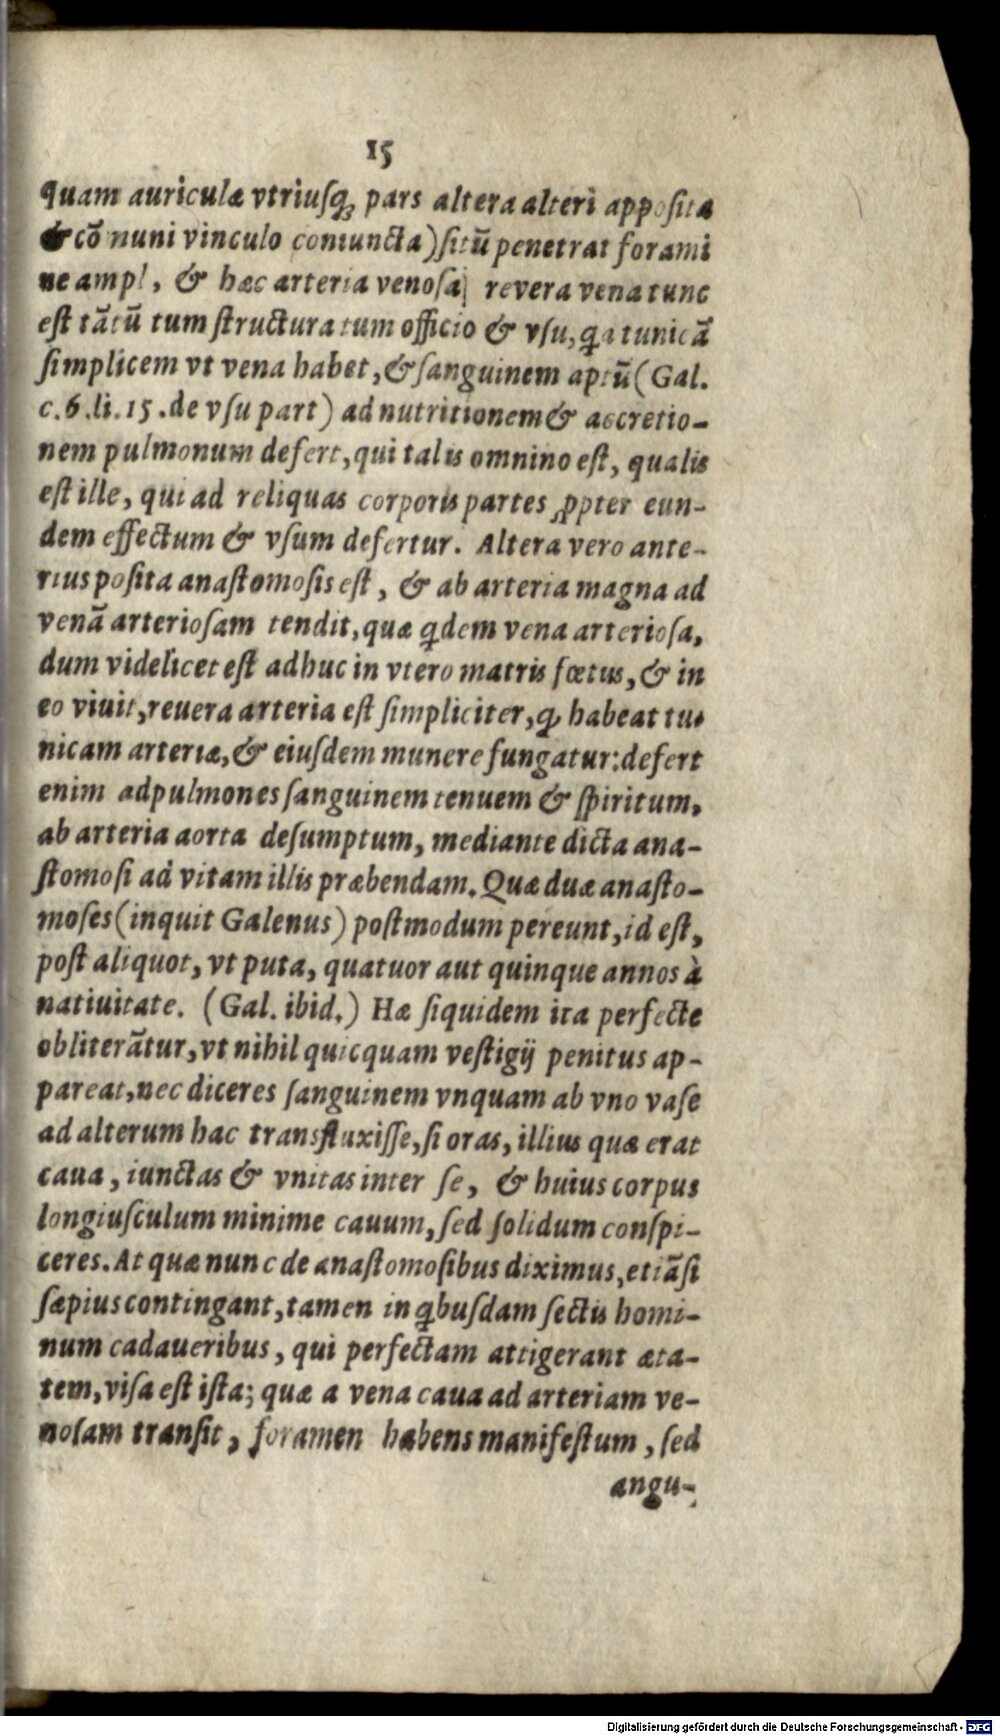 15
quam auriculæ vtriusq; pars altera alteri apposita
& cõmuni vinculo coniuncta) sitũ penetrat forami
ne ampl, & hæc arteria venosa revera vena tunc
est tãtũ tum structura tum officio & vsu, qa tunicã
simplicem vt vena habet, & sanguinem aptũ (Gal.
c.6.li.15.de vsu part) ad nutritionem & accretio-
nem pulmonum defert, qui talis omnino est, qualis
est ille, qui ad reliquas corporis partes ꝓpter eun-
dem effectum & vsum defertur. Altera vero ante-
rius posita anastomosis est, & ab arteria magna ad
venã arteriosam tendit, quæ qdem vena arteriosa,
dum videlicet est adhuc in vtero matris fœtus, & in
eo viuit, reuera arteria est simpliciter, ꝙ habeat tu-
nicam arteriæ, & eiusdem munere fungatur: defert
enim ad pulmones sanguinem tenuem & spiritum,
ab arteria aorta desumptum, mediante dicta ana-
stomosi ad vitam illis præbendam. Quæ duæ anasto-
moses (inquit Galenus) postmodum pereunt, id est,
post aliquot, vt puta, quatuor aut quinque annos à
natiuitate. (Gal. ibid.) Hæ siquidem ita perfecte
obliterãtur, vt nihil quicquam vestigij penitus ap-
pareat, nec diceres sanguinem vnquam ab vno vase
ad alterum hac transfluxisse, si oras, illius quæ erat
caua, iunctas & vnitas inter se, & huius corpus
longiusculum minime cauum, sed solidum conspi-
ceres. At quæ nunc de anastomosibus diximus, etiãsi
sæpius contingant, tamen in qbusdam sectis homi-
num cadaueribus, qui perfectam attigerant æta-
tem, visa est ista; quæ a vena caua ad arteriam ve-
nosam transit, foramen habens manifestum, sed
angu-
Digitalisierung gefördert durch die Deutsche Forschungsgemeinschaft - DFG